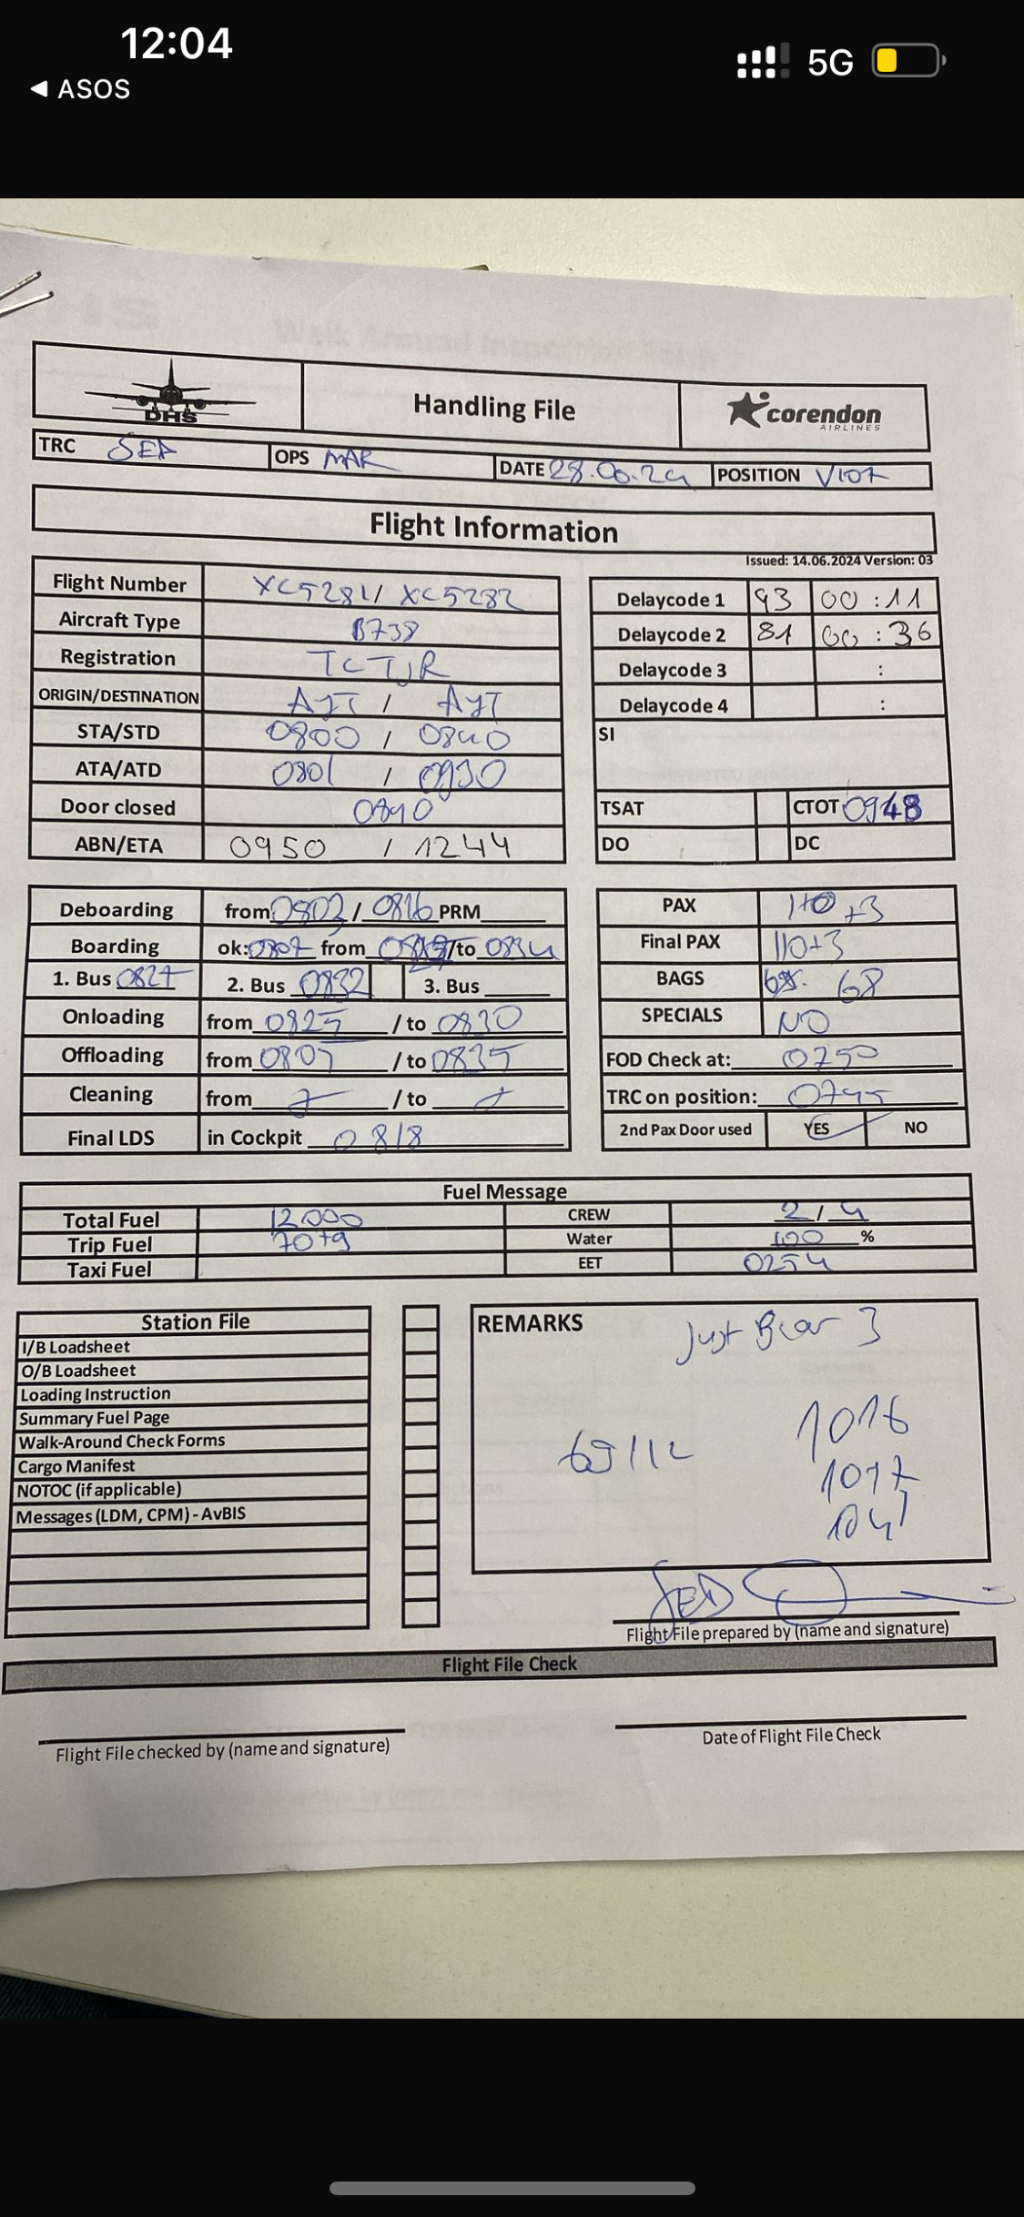 12:04
5G
◀ ASOS
DHS
Handling File
corendon
AIRLINES
TRC SED OPS MAR DATE 28.06.24 POSITION V107
Flight Information
Issued: 14.06.2024 Version: 03
Flight Number XC5281/ XC5282
Aircraft Type B738
Registration TCTJR
ORIGIN/DESTINATION AYT / AYT
STA/STD 0800 / 0840
ATA/ATD 0801 / 0930
Door closed 0840
ABN/ETA 0950 / 1244
Delaycode 1 93 00:11
Delaycode 2 81 00:36
Delaycode 3 :
Delaycode 4 :
SI
TSAT CTOT 0948
DO DC
Deboarding from 0803 / 0816 PRM
Boarding ok: 0807 from /to 0834
1. Bus 0827 2. Bus 0832 3. Bus
Onloading from 0825 / to 0830
Offloading from 0807 / to 0835
Cleaning from / to
Final LDS in Cockpit 0818
PAX 110 +3
Final PAX 110+3
BAGS 68
SPECIALS NO
FOD Check at: 0750
TRC on position: 0745
2nd Pax Door used YES NO
Fuel Message
Total Fuel 12000 CREW 2/4
Trip Fuel 7079 Water 100 %
Taxi Fuel EET 0254
Station File
I/B Loadsheet
O/B Loadsheet
Loading Instruction
Summary Fuel Page
Walk-Around Check Forms
Cargo Manifest
NOTOC (if applicable)
Messages (LDM, CPM) - AvBIS
REMARKS
Just 3
1016
1017
1041
SED
Flight File prepared by (name and signature)
Flight File Check
Flight File checked by (name and signature)
Date of Flight File Check